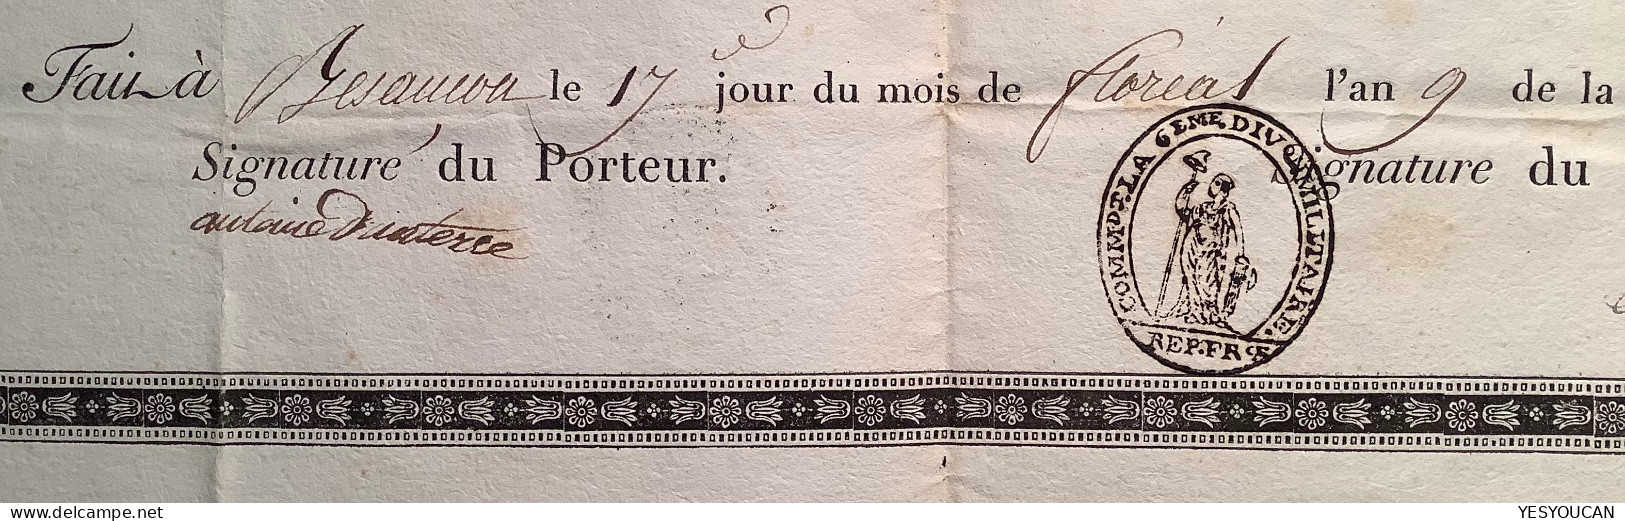 Fait à Besançon le 17e jour du mois de floréal l'an 9 de la
Signature du Porteur. Signature du
antoine
COMMDT LA 6EME DIVON MILITAIRE.
REP. FRSE
delcampe.net
YESYOUCAN